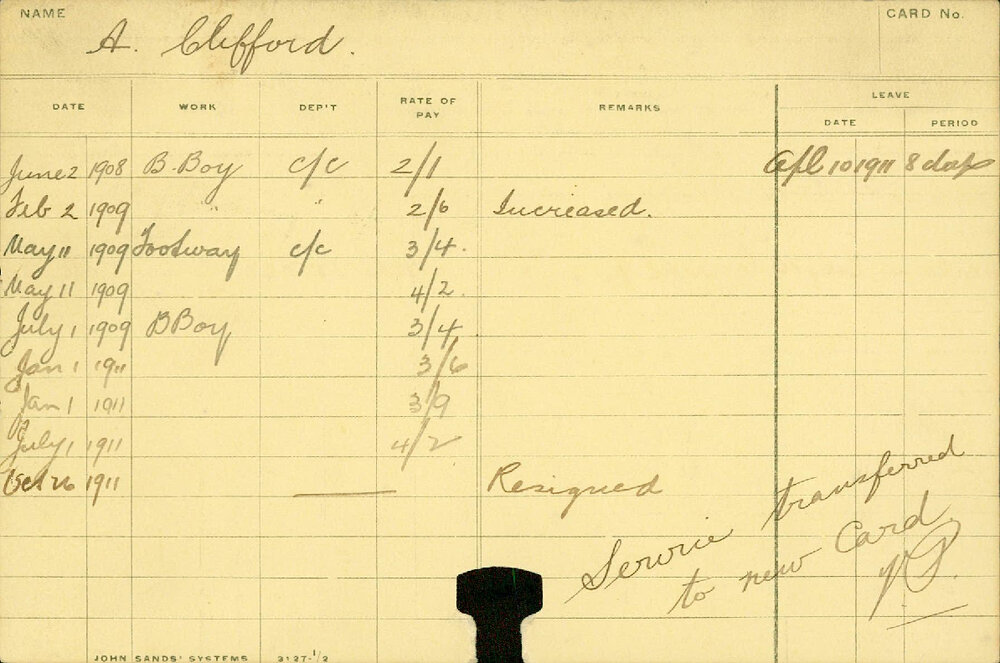 NAME
CARD No.
A. Clifford.
DATE WORK DEP'T RATE OF PAY REMARKS LEAVE
DATE PERIOD
June 2 1908 B. Boy c/c 2/1 Apl 10 1911 8 days
Feb 2 1909 " " 2/6 Increased.
May 11 1909 Footway c/c 3/4.
May 11 1909 4/2.
July 1 1909 B Boy 3/4
Jan 1 1911 3/6
Jan 1 1911 3/9
July 1 1911 4/2
Oct 26 1911 Resigned
Service transferred
to new Card
JOHN SANDS' SYSTEMS 3127-1/2